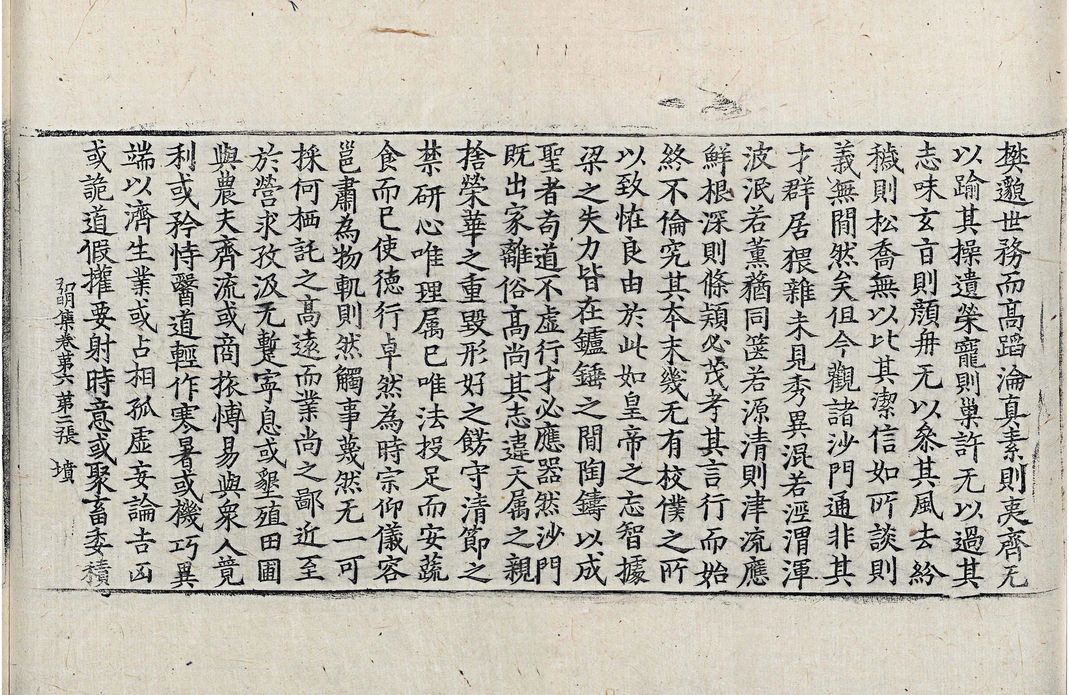 樊邈世務而髙蹈淪真素則夷齊无
以踰其操遺榮寵則巢許无以過其
志味玄旨則顔冉无以叅其風去紛
穢則松喬無以比其潔信如所談則
義無間然矣但今觀諸沙門通非其
才群居猥雜未見秀異混若涇渭渾
波泯若薰蕕同篋若源清則津流應
鮮根深則條頴必茂考其言行而始
終不倫究其夲末幾无有校僕之所
以致怪良由於此如皇帝之忘智據
梁之失力皆在鑪錘之間陶鑄以成
聖者苟道不虚行才必應器然沙門
既出家離俗髙尚其志違天属之親
捨榮華之重毀形好之餝守清節之
禁研心唯理属已唯法投足而安蔬
食而已使德行卓然為時宗仰儀容
邕肅為物軌則然觸事蔑然无一可
採何栖託之髙遠而業尚之鄙近至
於營求孜汲无蹔寧息或墾殖田圃
與農夫齊流或商旅博易與衆人竟
利或矜恃醫道輕作寒暑或機巧異
端以濟生業或占相孤虚妄論吉凶
或詭道假權要射時意或聚畜委積
弘明集卷第六 第二張 墳